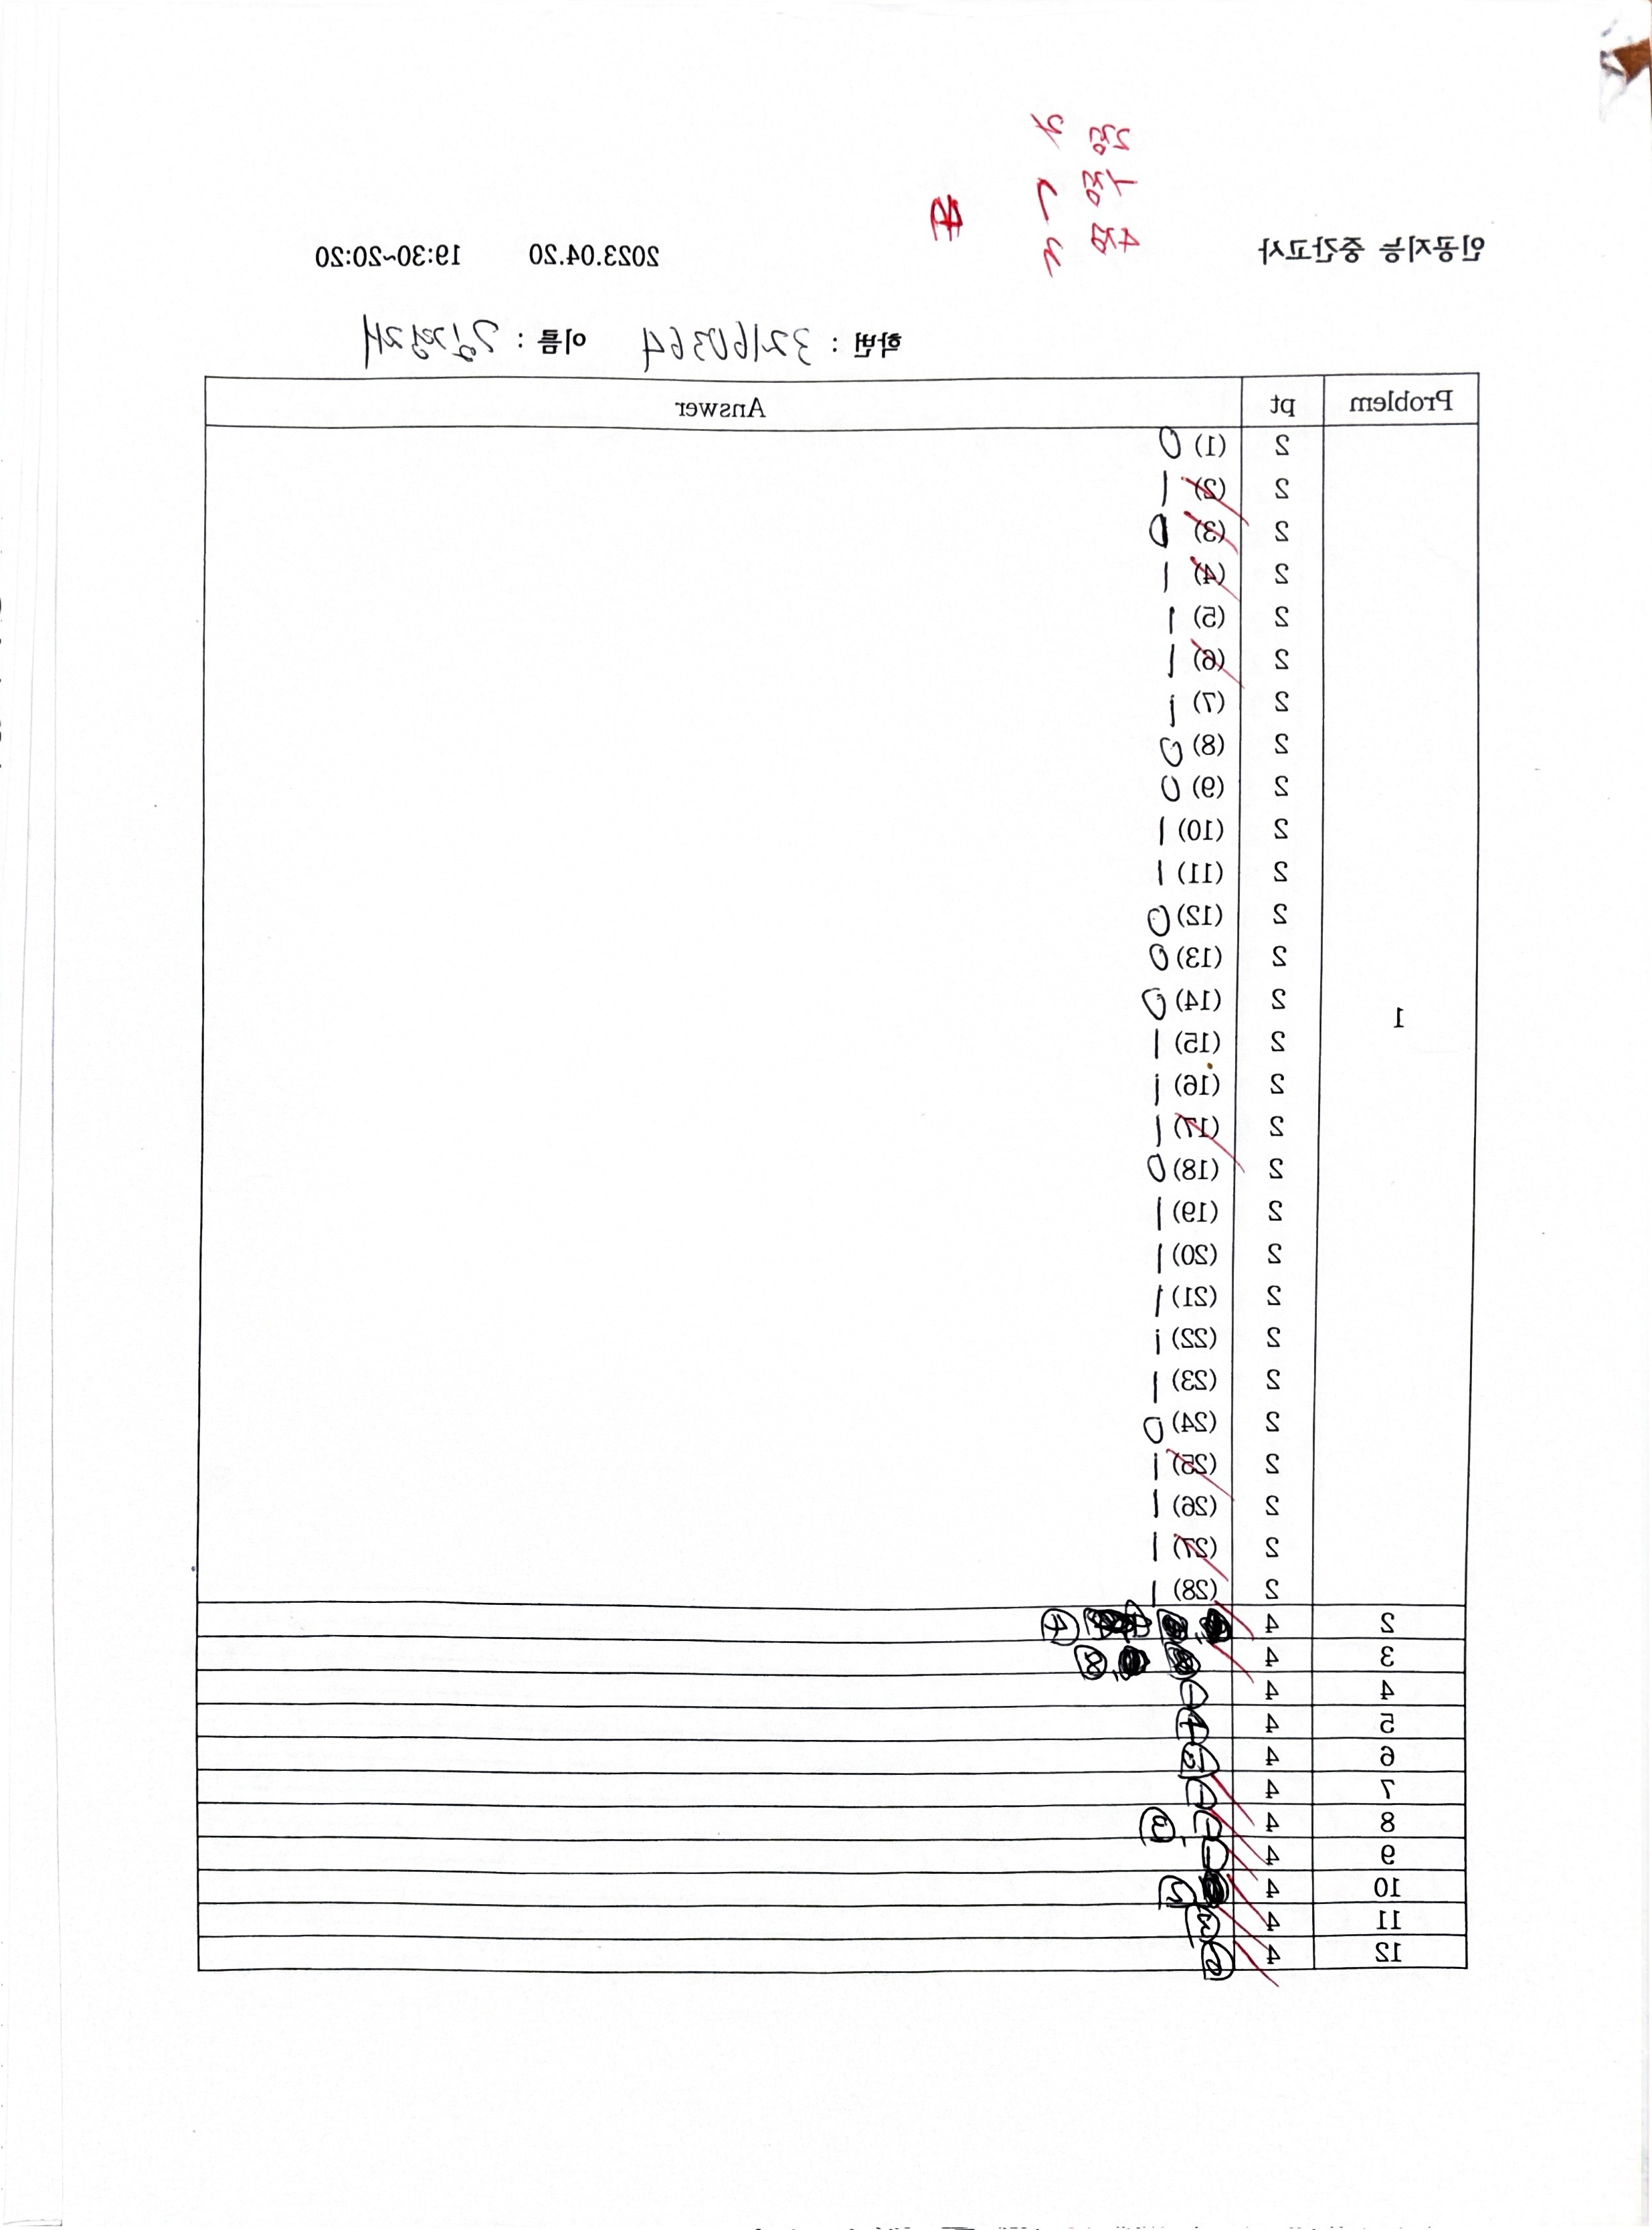 2점
4점
인공지능 중간고사 2023.04.20 19:30~20:20
학번 : 32160364 이름 :
Problem pt Answer
1
2 (1) 0
2 (2) 1
2 (3) 0
2 (4) 1
2 (5) 1
2 (6) 1
2 (7) 1
2 (8) 0
2 (9) 0
2 (10) 1
2 (11) 1
2 (12) 0
2 (13) 0
2 (14) 0
2 (15) 1
2 (16) 1
2 (17) 1
2 (18) 0
2 (19) 1
2 (20) 1
2 (21) 1
2 (22) 1
2 (23) 1
2 (24) 0
2 (25) 1
2 (26) 1
2 (27) 1
2 (28) 1
2 4 ④
3 4
4 4
5 4 ④
6 4
7 4
8 4
9 4
10 4
11 4
12 4